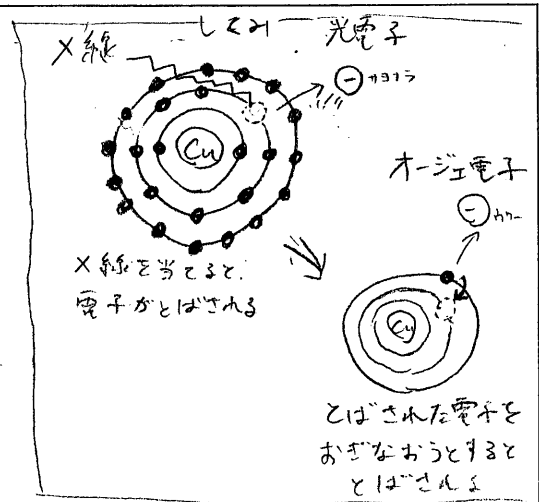 しくみ
X線
光電子
サヨナラ
Cu
オージェ電子
X線を当てると
電子がとばされる
Cu
とばされた電子を
おぎなおうとすると
とばされる